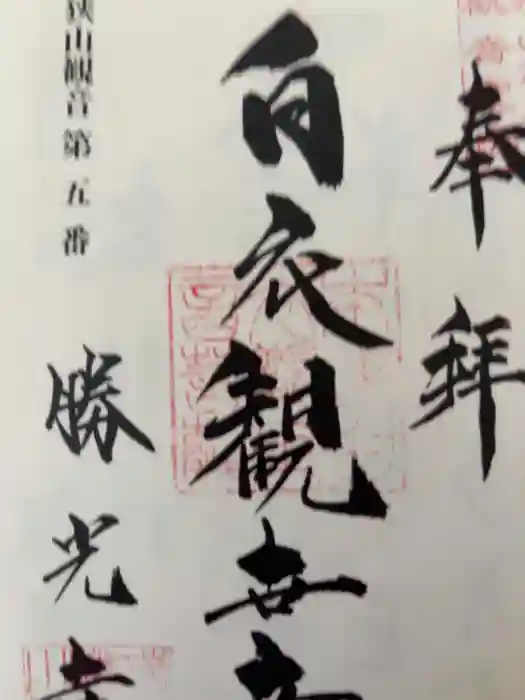 奉拝
白衣観世音
狭山観音第五番
勝光寺